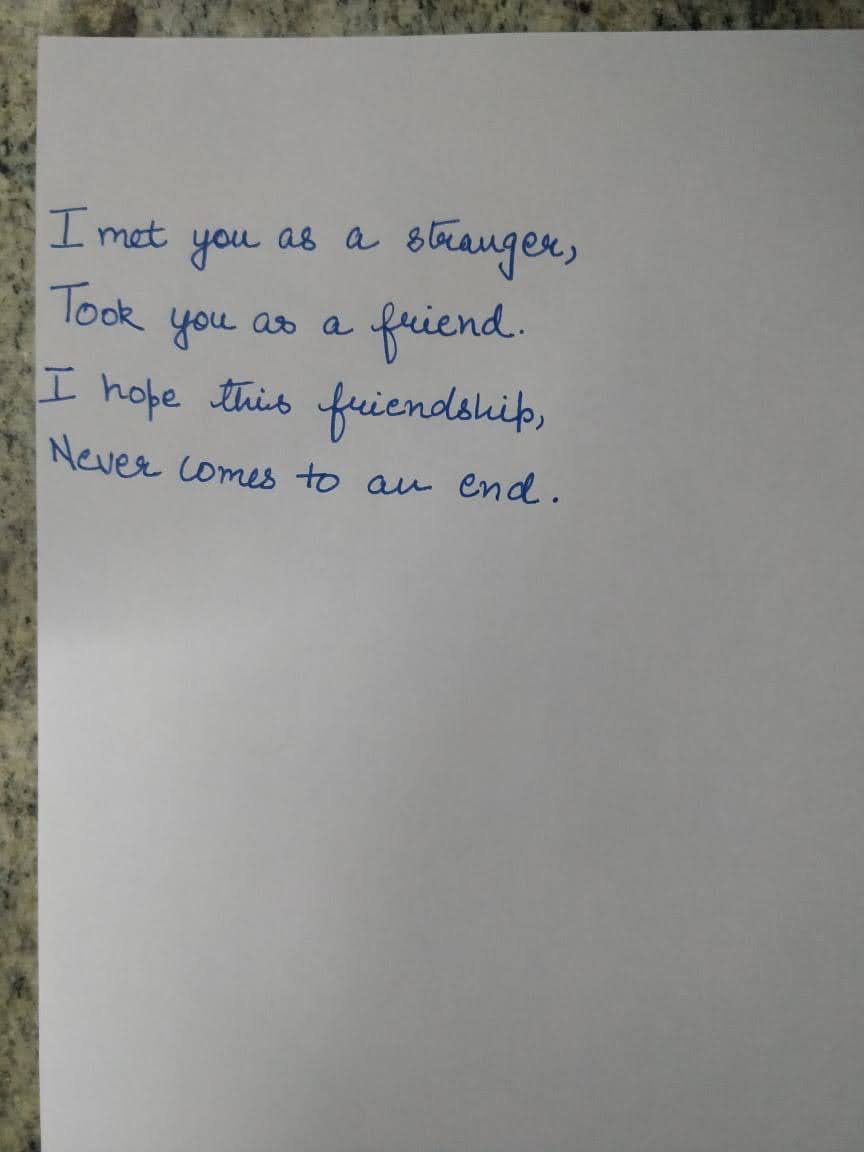 I met you as a stranger,
Took you as a friend.
I hope this friendship,
Never comes to an end.